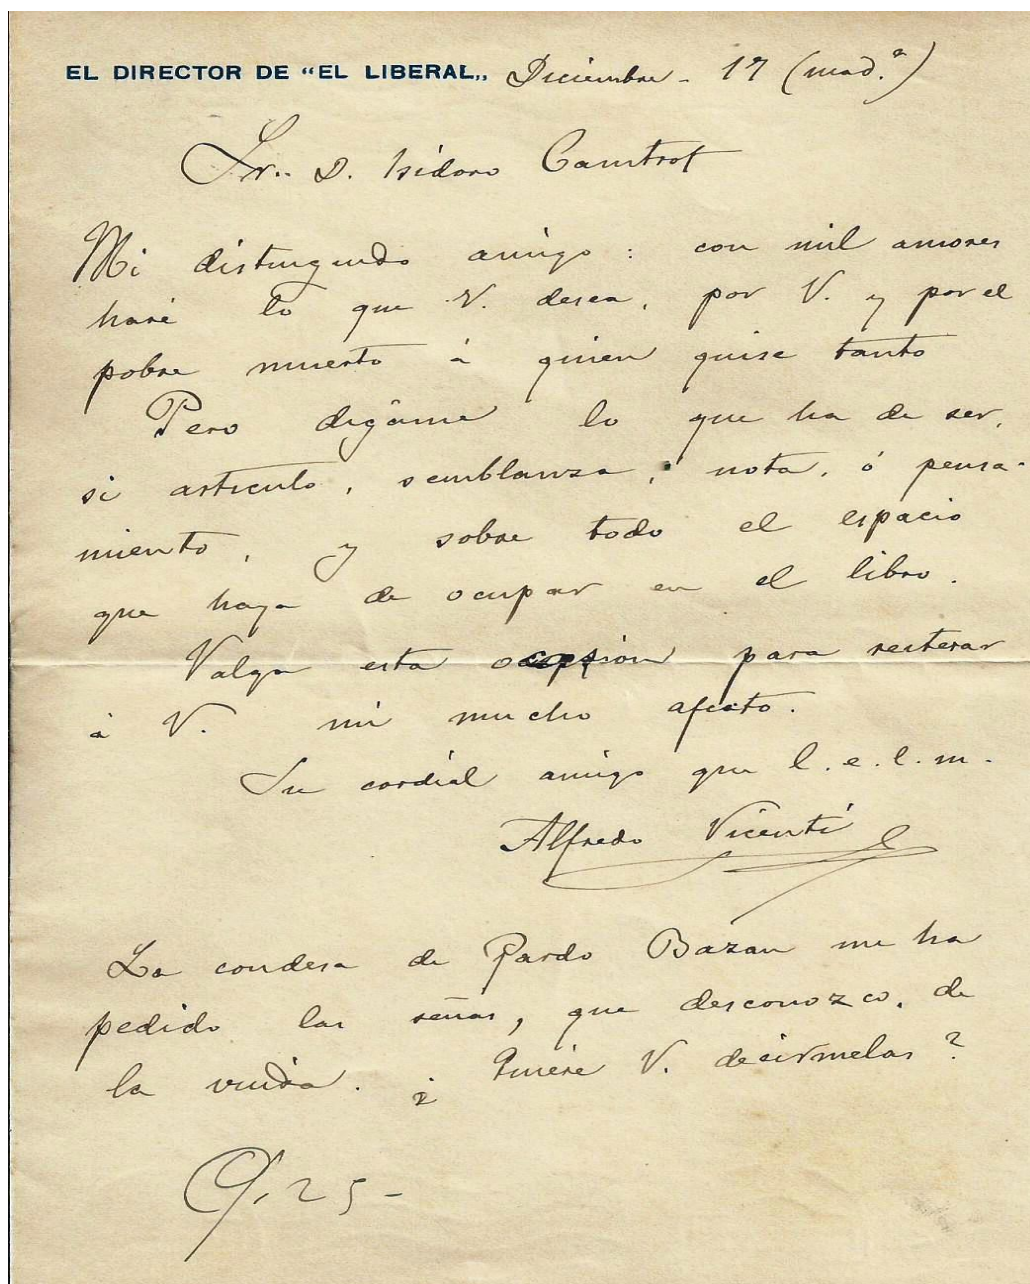 EL DIRECTOR DE “EL LIBERAL„ Diciembre - 17 (mad.ª)
Sr. D. Isidoro
Mi distinguido amigo : con mil amores
haré lo que V. desea, por V. y por el
pobre muerto á quien quise tanto
Pero digáme lo que ha de ser,
si artículo, semblanza, nota, ó pensa-
miento, y sobre todo el espacio
que haya de ocupar en el libro.
Valga esta ocasión para reiterar
á V. mi mucho afecto.
Su cordial amigo que l. e. l. m.
Alfredo Vicenti
La condesa de Pardo Bazan me ha
pedido las señas, que desconozco, de
la viuda. ¿ Quiere V. decírmelas ?
25-